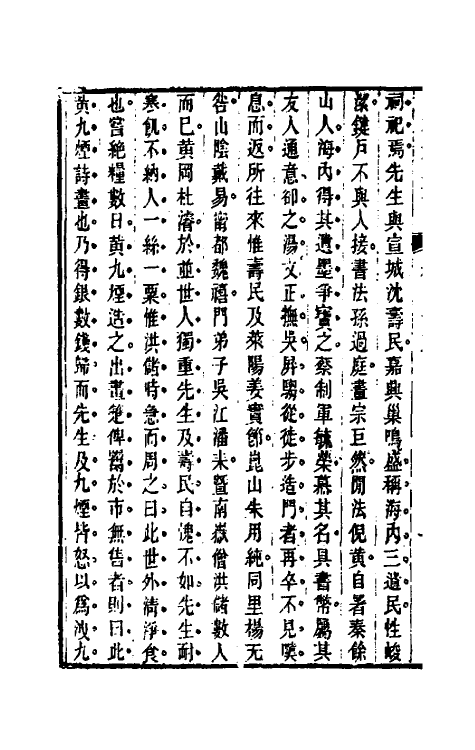 祠祀焉先生與宣城沈壽民嘉興巢鳴盛稱海內三遺民性峻
潔鍵戶不與人接書法孫過庭畫宗巨然間法倪黃自署秦餘
山人海內得其遺墨爭寶之蔡制軍毓榮慕其名具書幣屬其
友人通意卻之湯文正撫吳屏騶從徒步造門者再卒不見嘆
息而返所往來惟壽民及萊陽姜實節崑山朱用純同里楊无
咎山陰戴易甯都魏禧門弟子吳江潘耒暨南嶽僧洪儲數人
而巳黃岡杜濬於並世人獨重先生及壽民自愧不如先生耐
寒飢不納人一絲一粟惟洪儲時急而周之曰此世外清淨食
也嘗絕糧數日黃九煙造之出畫箑俾鬻於市無售者則曰此
黃九煙詩畫也乃得銀數錢歸而先生及九煙皆怒以爲洩九